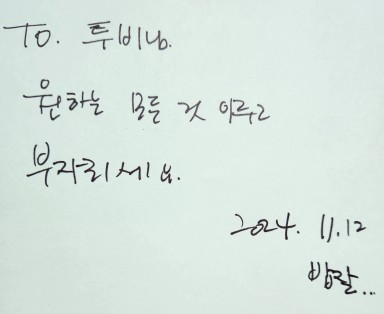 To. 투비님.
원하는 모든 것 이루고
부자되세요.
2024. 11.12
밥잘...